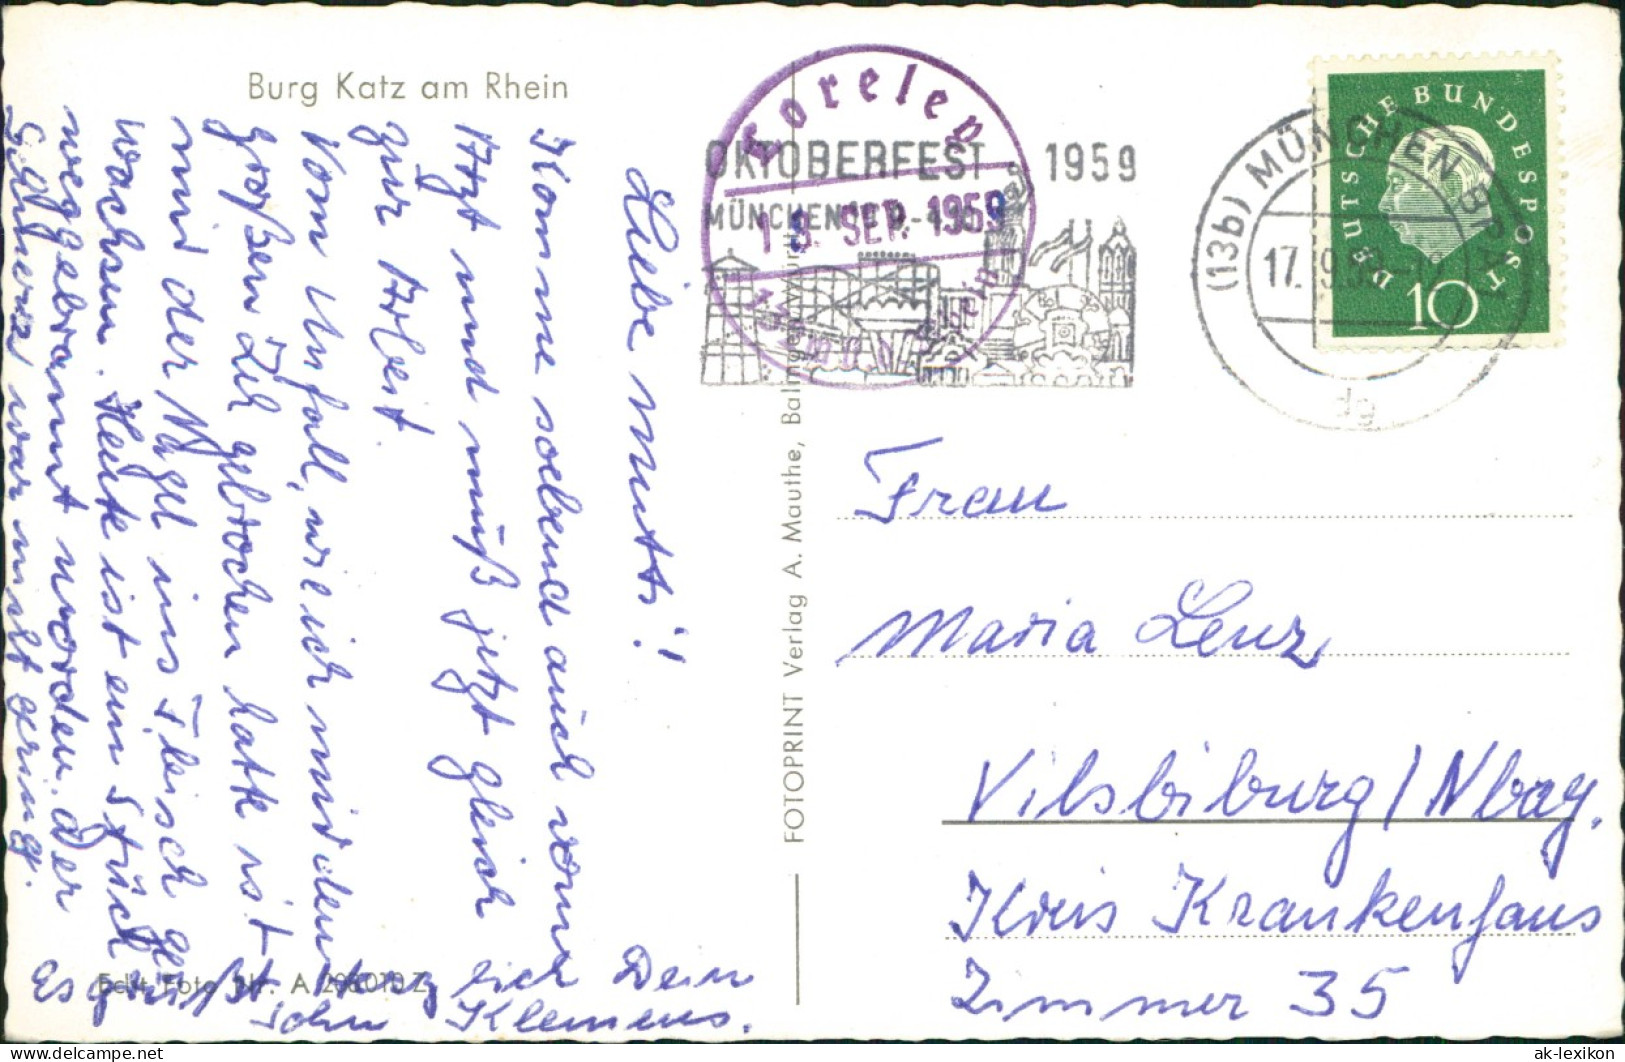 Burg Katz am Rhein
Liebe Mutti!
Komme soeben auch vom
Arzt und muß jetzt gleich
zur Arbeit.
Vom Unfall, wie ich mir den
großen Zeh gebrochen hatte ist
mir der Nagel ins Fleisch ge-
wachsen. Heute ist ein Stück
weggebrannt worden. Der
Schmerz war nicht gering.
Es grüßt herzlich Dein
Sohn Klemens.
Echt Foto Nr. A 296010 Z
FOTOPRINT Verlag A. Mauthe, Balingen/Württ.
Loreley
13. SEP. 1959
OKTOBERFEST 1959
MÜNCHEN
(13b) MÜNCHEN BPA
17.9.59
dg
DEUTSCHE BUNDESPOST
10
Frau
Maria Lenz
Vilsbiburg/Nbay.
Kreis Krankenhaus
Zimmer 35
© oldthing.de
ak-lexikon